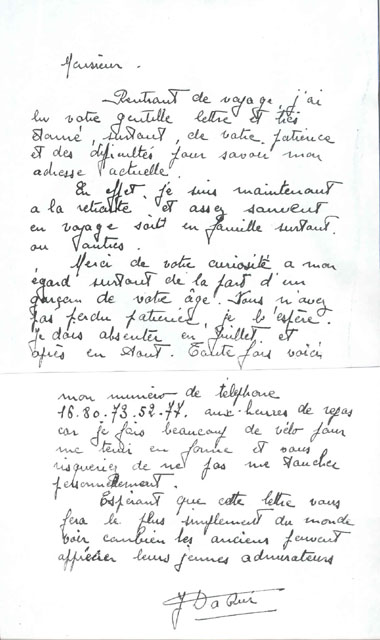 Monsieur.
Rentrant de voyage, j'ai
lu votre gentille lettre et très
étonné, surtout, de votre patience
et des difficultés pour savoir mon
adresse actuelle.
En effet, je suis maintenant
a la retraite et assez souvent
en voyage soit en famille surtout.
ou autres.
Merci de votre curiosité a mon
égard surtout de la part d'un
garçon de votre âge. Vous n'avez
pas perdu patience, je l'espère.
je dois absenter en Juillet et
après en Aout. Toute fois voici
mon numéro de téléphone
16.80.73.52.77. aux heures de repas
car je fais beaucoup de vélo pour
me tenir en forme et vous
risqueriez de ne pas me toucher
personnellement.
Espérant que cette lettre vous
fera le plus simplement du monde
voir combien les anciens peuvent
apprécier leurs jeunes admirateurs